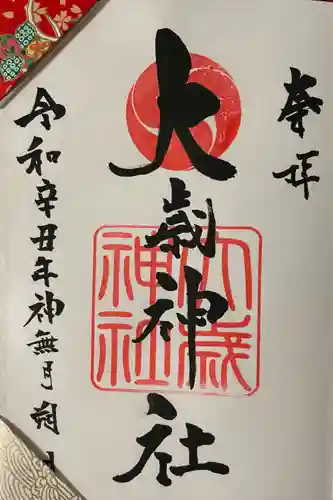 奉拝
大歳神社
大歳
神社
令和辛丑年神無月朔日